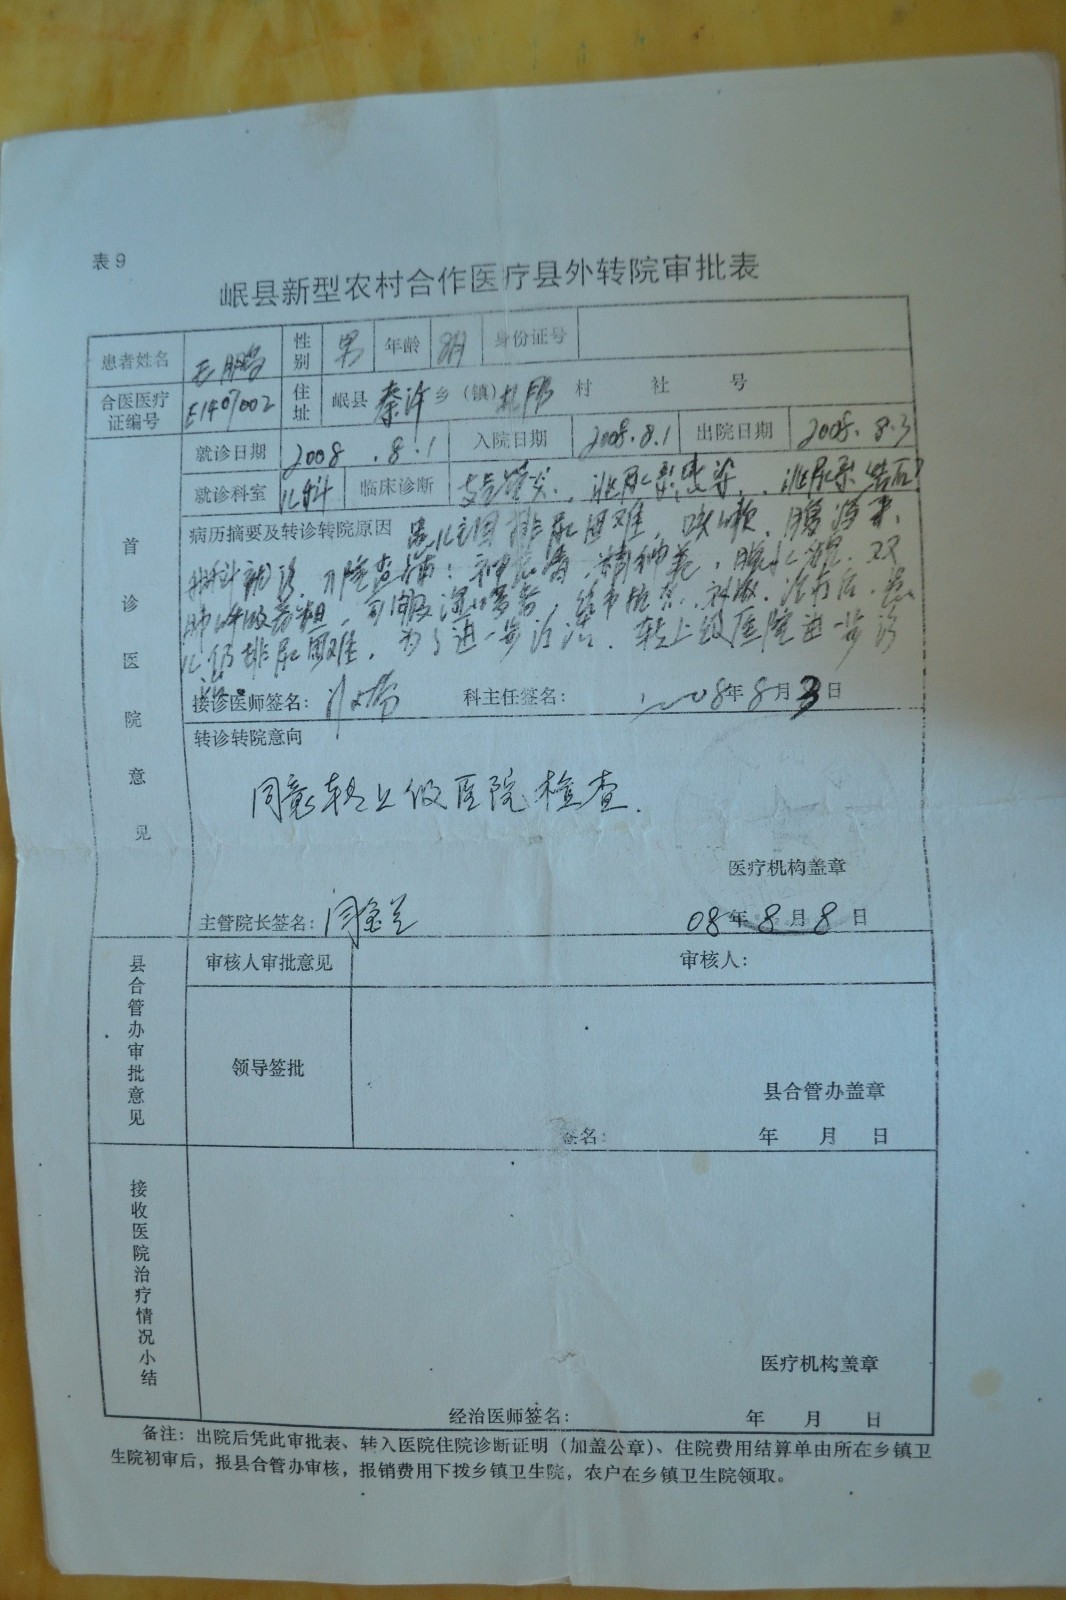 表9
岷县新型农村合作医疗县外转院审批表
患者姓名 鹏 性别 男 年龄 身份证号
合医医疗证编号 E1407002 住址 岷县 秦许 乡（镇） 村 社 号
首诊医院意见
就诊日期 2008.8.1 入院日期 2008.8.1 出院日期 2008.8.3
就诊科室 儿科 临床诊断 支气管炎、泌尿系感染、泌尿系结石?
病历摘要及转诊转院原因 患儿主因排尿困难、咳嗽、腹泻来
我科就诊，入院查:神志清，精神差，双
肺呼吸音粗，可闻及湿啰音，给予抗炎、补液、治疗后，患
儿仍排尿困难，为了进一步治疗，转上级医院进一步诊
治。
接诊医师签名： 科主任签名： 2008年8月3日
转诊转院意向
同意转上级医院检查.
医疗机构盖章
主管院长签名： 闫 08年8月8日
县合管办审批意见
审核人审批意见 审核人：
领导签批
县合管办盖章
签名： 年 月 日
接收医院治疗情况小结
医疗机构盖章
经治医师签名： 年 月 日
备注：出院后凭此审批表、转入医院住院诊断证明（加盖公章）、住院费用结算单由所在乡镇卫
生院初审后，报县合管办审核，报销费用下拨乡镇卫生院，农户在乡镇卫生院领取。